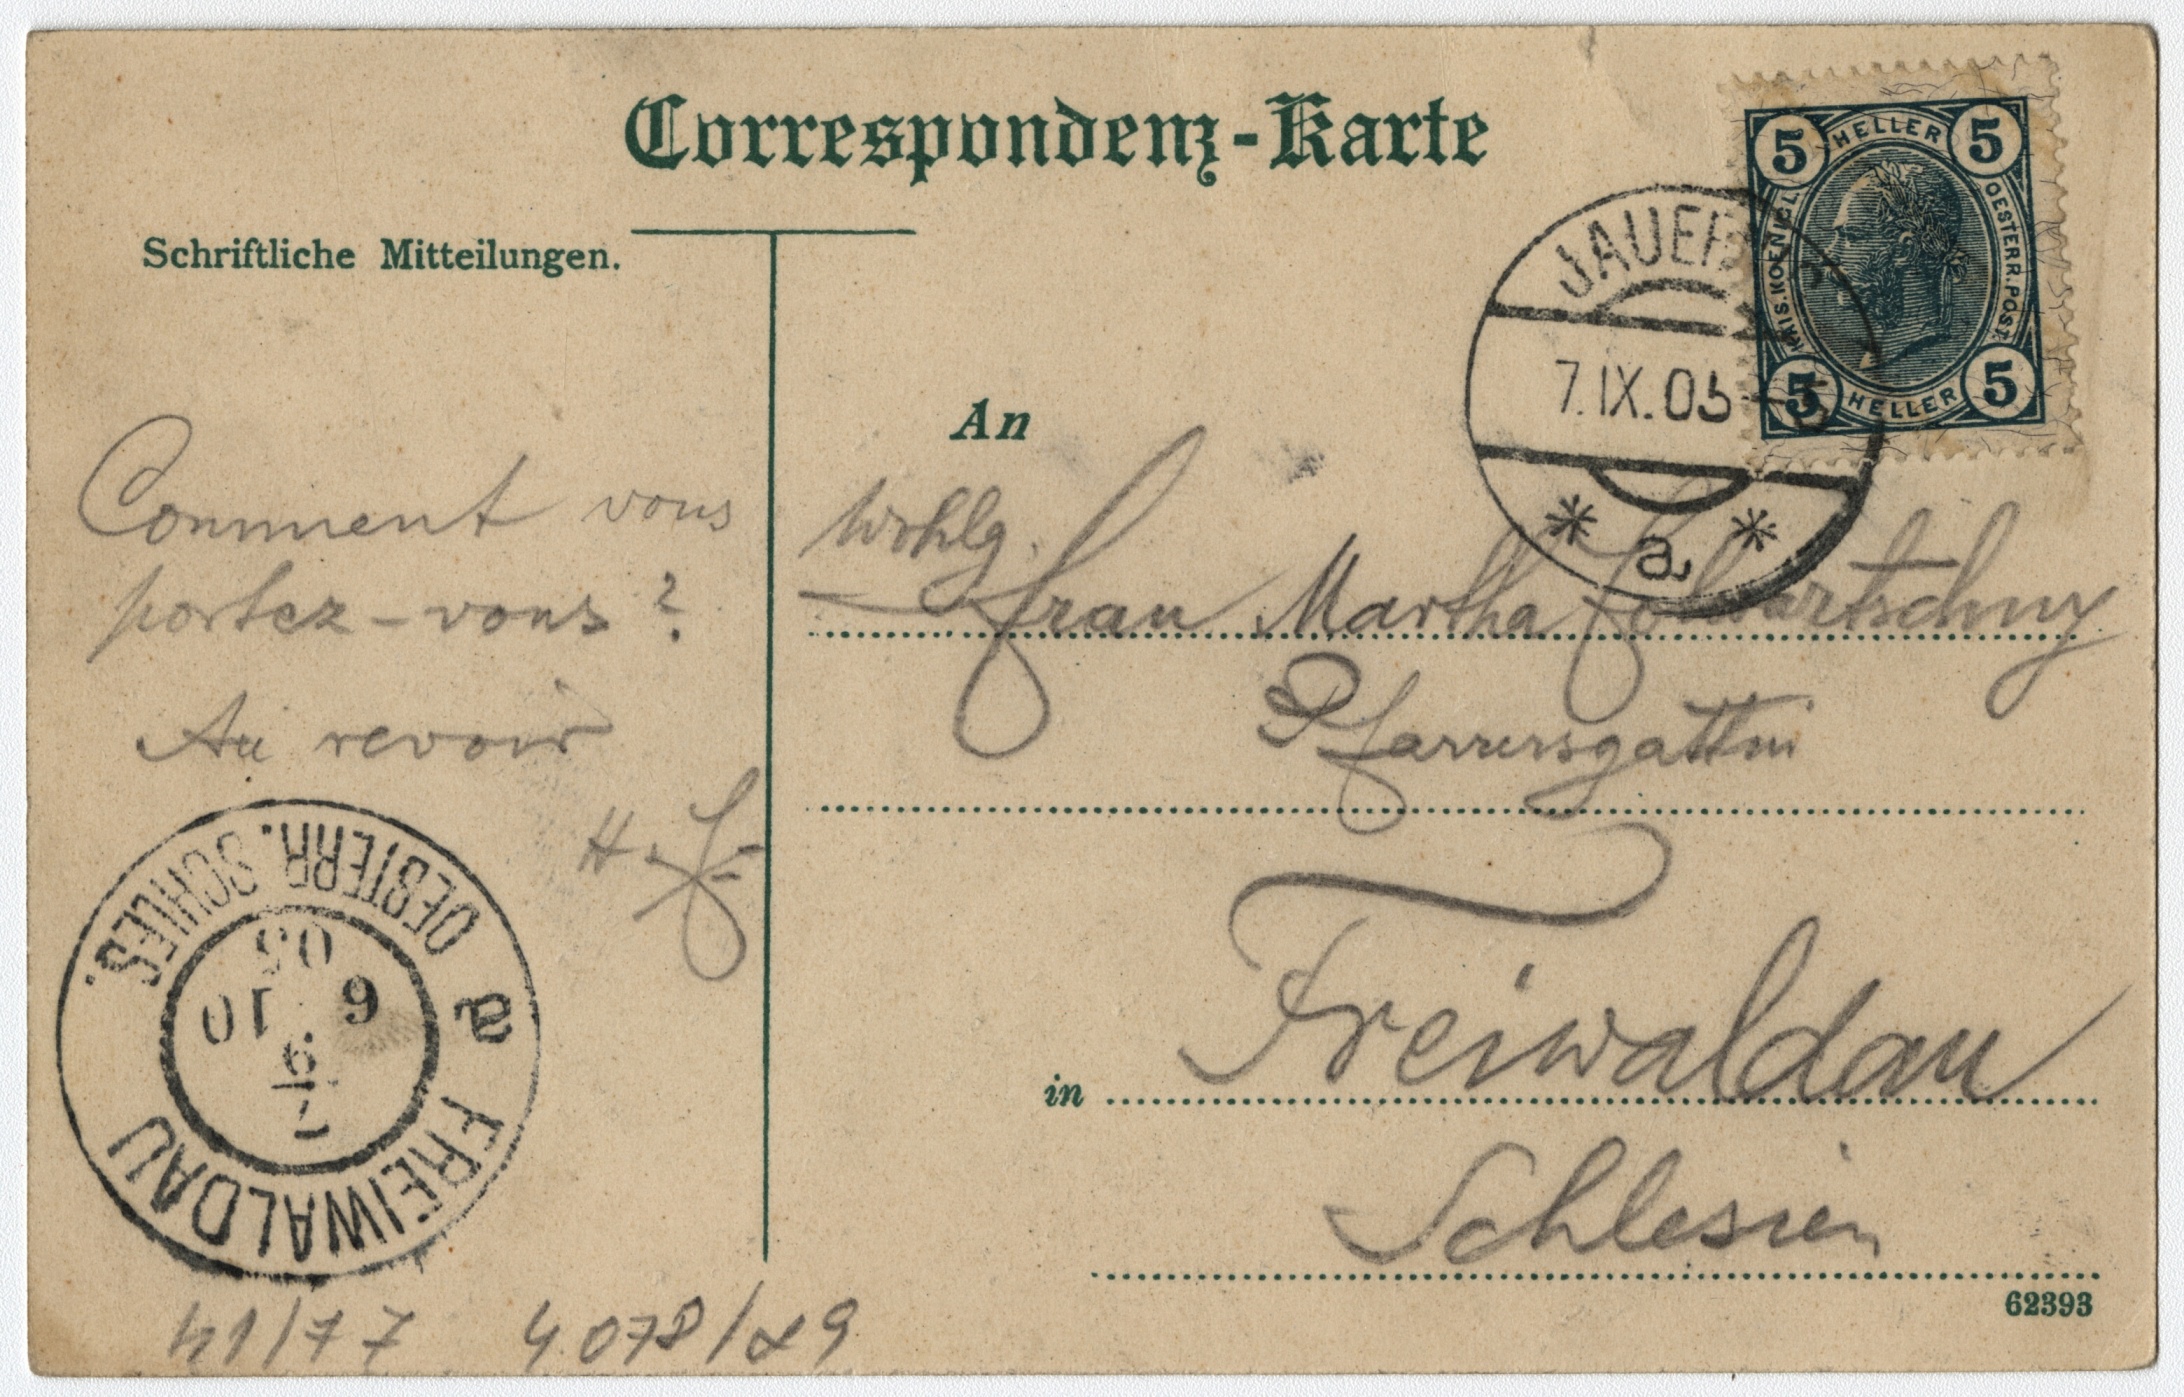 Correspondenz-Karte
Schriftliche Mitteilungen.
5 HELLER 5
KAIS. KOENIGL.
OESTERR. POST
5 HELLER 5
JAUER
7.IX.05
* a *
An
Comment vous
portez-vous?
Au revoir
H.
Wohlg.
Frau Martha
Pfarrersgattin
in Freiwaldau
Schlesien
FREIWALDAU
a
OESTERR. SCHLES.
7
9
6 10
05
41/77 4078/89
62393